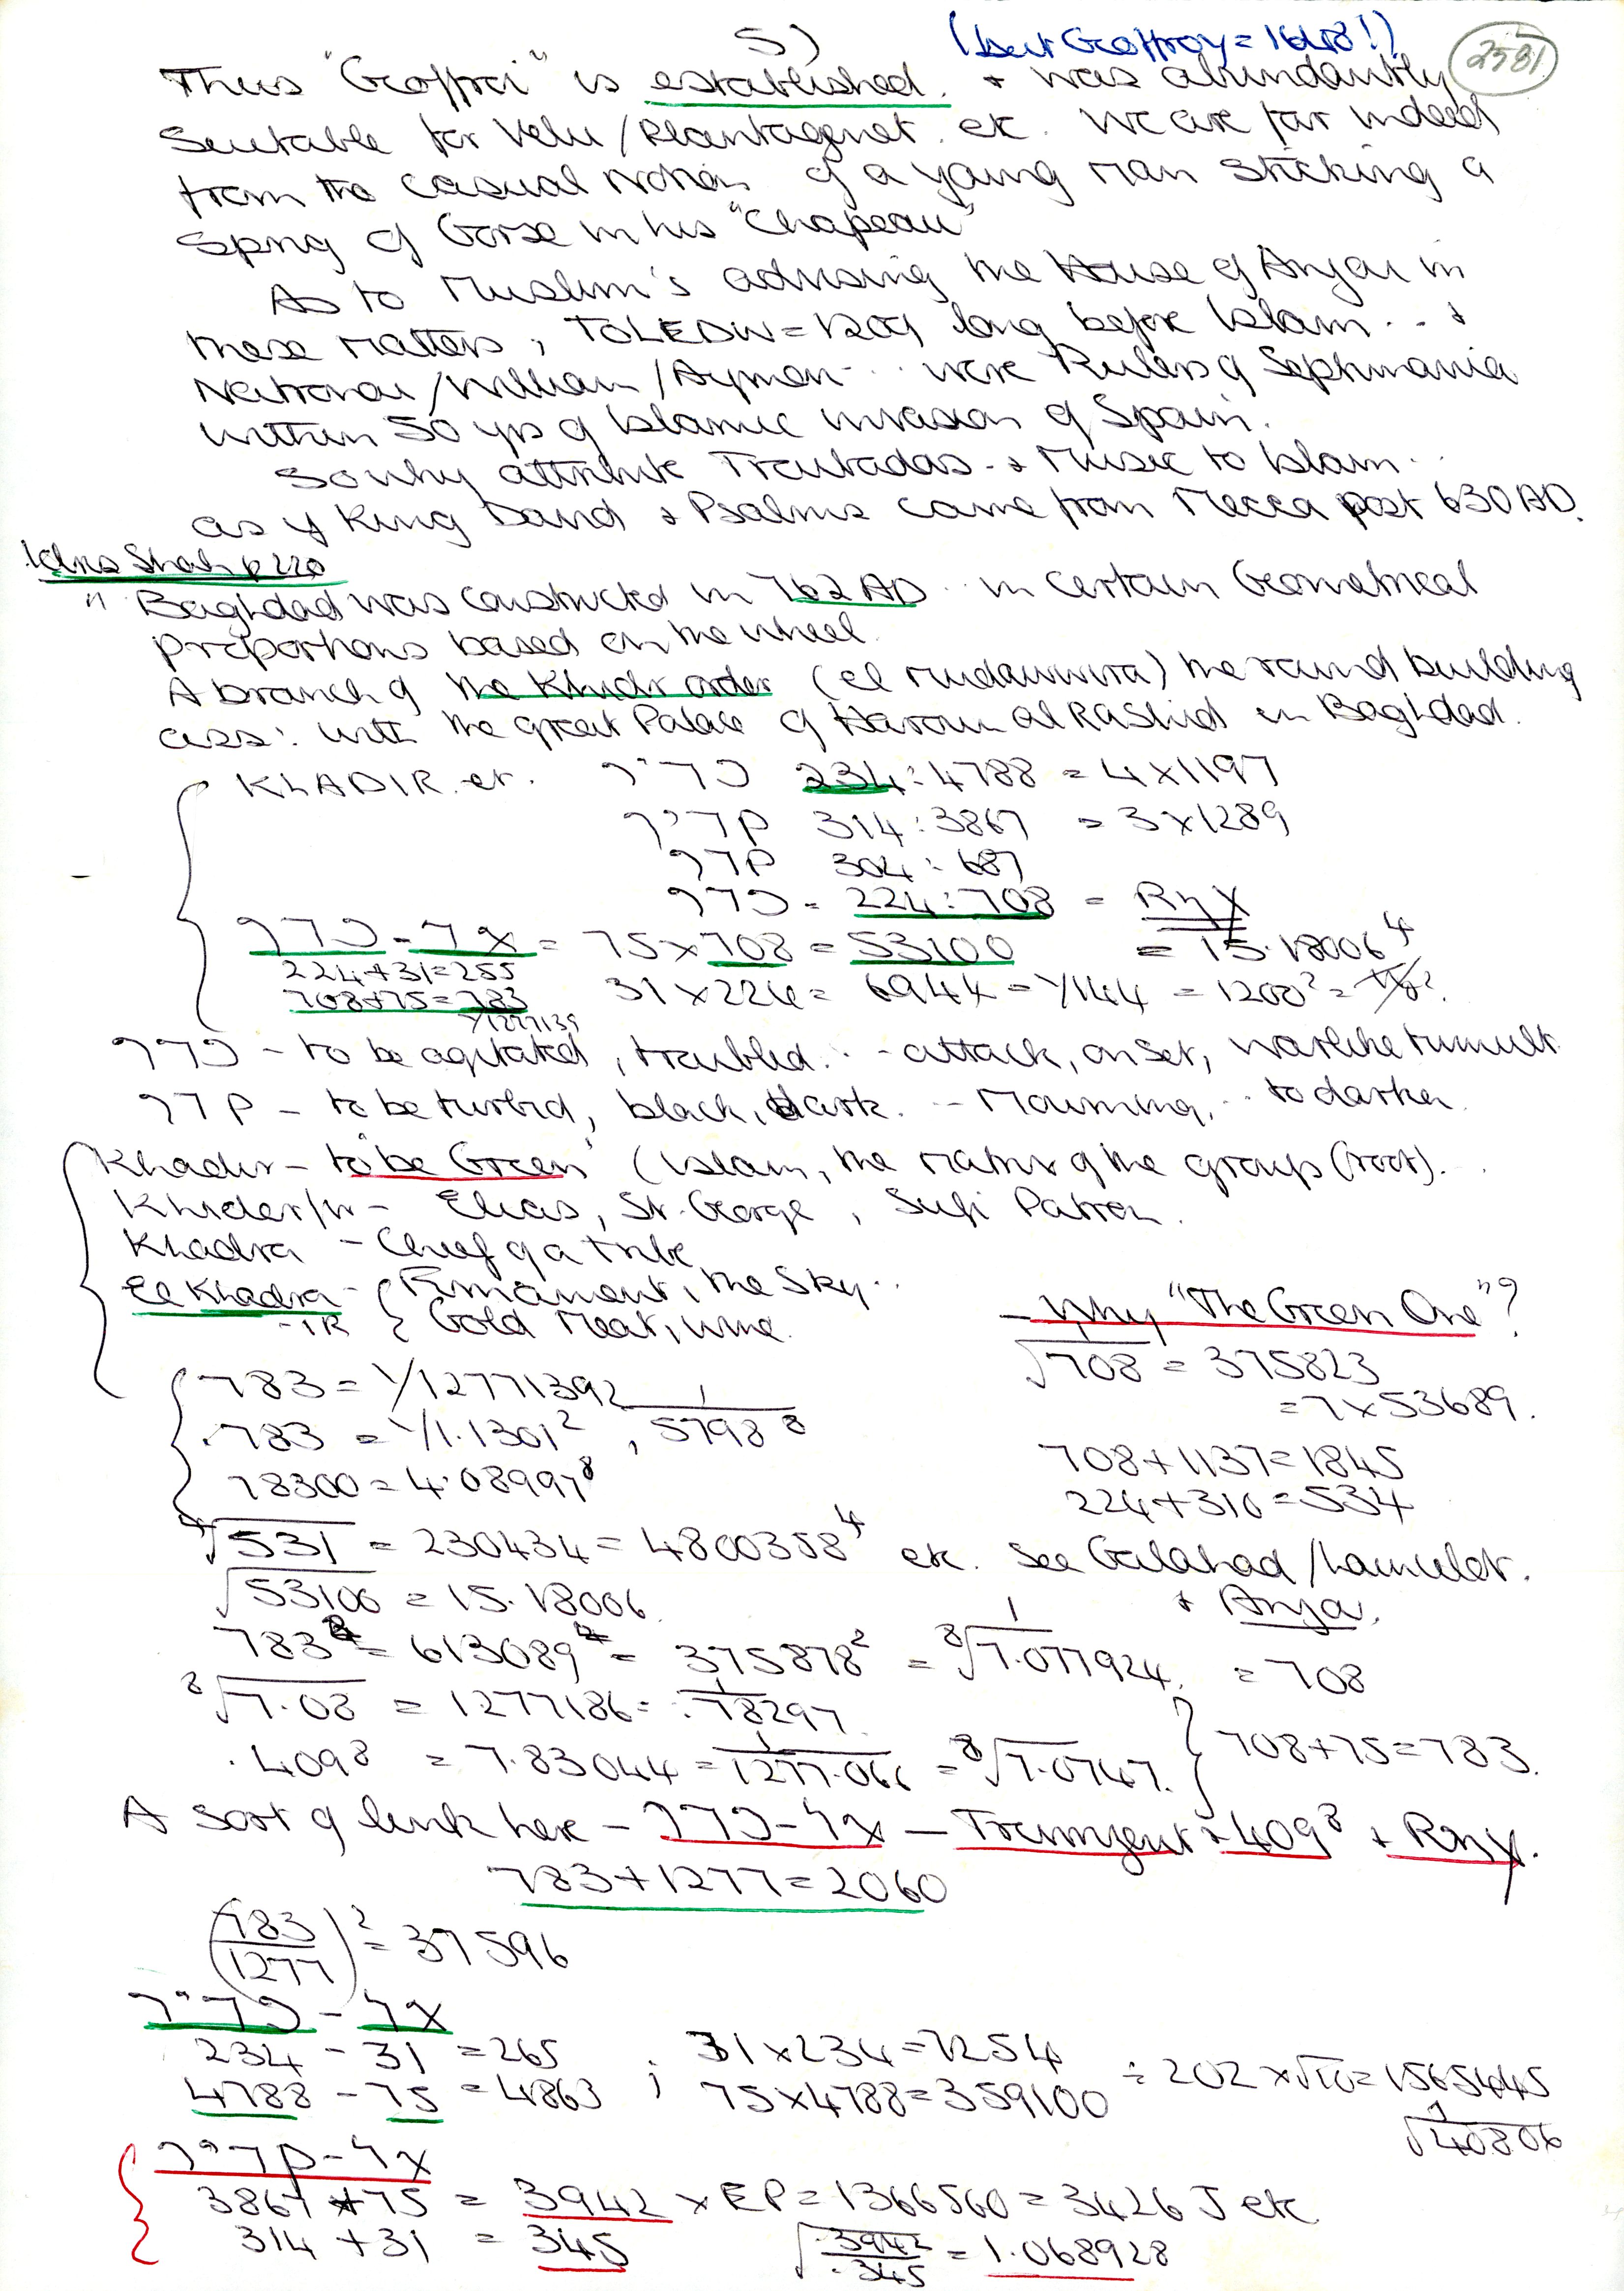 5)
(but Geoffroy = 1648!)
2581
Thus "Geoffrei" is established. + was abundantly
Suitable for Velu / Plantagenet. etc. We are far indeed
from the casual notion of a young man sticking a
Sprig of Gorse in his "Chapeau"
As to Muslim's advising the House of Anjou in
these matters, TOLEDW = 1209 long before Islam... +
National / William / Aymon... were Rulers of Septimania
within 50 yrs of Islamic invasion of Spain.
So why attribute Troubadas - + Music to Islam..
as if King David + Psalms came from Mecca post 630 AD.
Idris Shah p 220
" Baghdad was constructed in 762 AD. in certain Geometrical
proportions based on the wheel.
A branch of the Khidr order (el mudawwira) the round building
ass: with the great Palace of Haroun al Rashid in Baghdad.
KHADIR. etc. כדיר 234 : 4788 = 4 x 1197
קדיר 314 : 3867 = 3 x 1289
קדר 304 : 687
כדר = 224 : 708 = Rny
כדר - אל = 75 x 708 = 53100 = 15.18006⁴
224 + 31 = 255
31 x 224 = 6944 = 1/144 = 1200²
708 + 75 = 783
1/1277139
כדר - to be agitated, troubled. - attack, onset, warlike tumult
קדר - to be turbid, black, dark. - Mourning, .. to darken.
Khadir - to be Green (Islam, the matrix of the group (root)..
Khider/ir - Elias, St. George, Sufi Patron.
Khadra - Chief of a tribe
El Khadra - { Firmament, the Sky..
-IR { Gold Meat, wine.
- Why "The Green One"?
√708 = 375823
= 7 x 53689.
783 = 1/12771392
.783 = 1/1.1301², 1/5798⁸
78300 = 4.08997⁸
708 + 1137 = 1845
224 + 310 = 534
⁴√531 = 230434 = 4800358⁴ etc. See Galahad / Lancelot.
+ Anjou.
√53100 = 15.18006.
783² = 613089² = 375878² = 1/⁸√7.077924. = 708
⁸√7.08 = 1277186 = 1/.78297
.409⁸ = 7.83044 = 1/1277.066 = ⁸√7.0747. } 708 + 75 = 783.
A sort of link here - כדר - אל - + 409⁸ + Rny.
783 + 1277 = 2060
(783/1277)² = 37596
כדיר - אל
234 - 31 = 265 ; 31 x 234 = 7254
4788 - 75 = 4863 ; 75 x 4788 = 359100 ÷ 202 x √10 = 1565445
1/√40806
קדיר - אל
3867 + 75 = 3942 x EP = 1366560 = 3426 J etc
314 + 31 = 345 √.3942/.345 = 1.068928